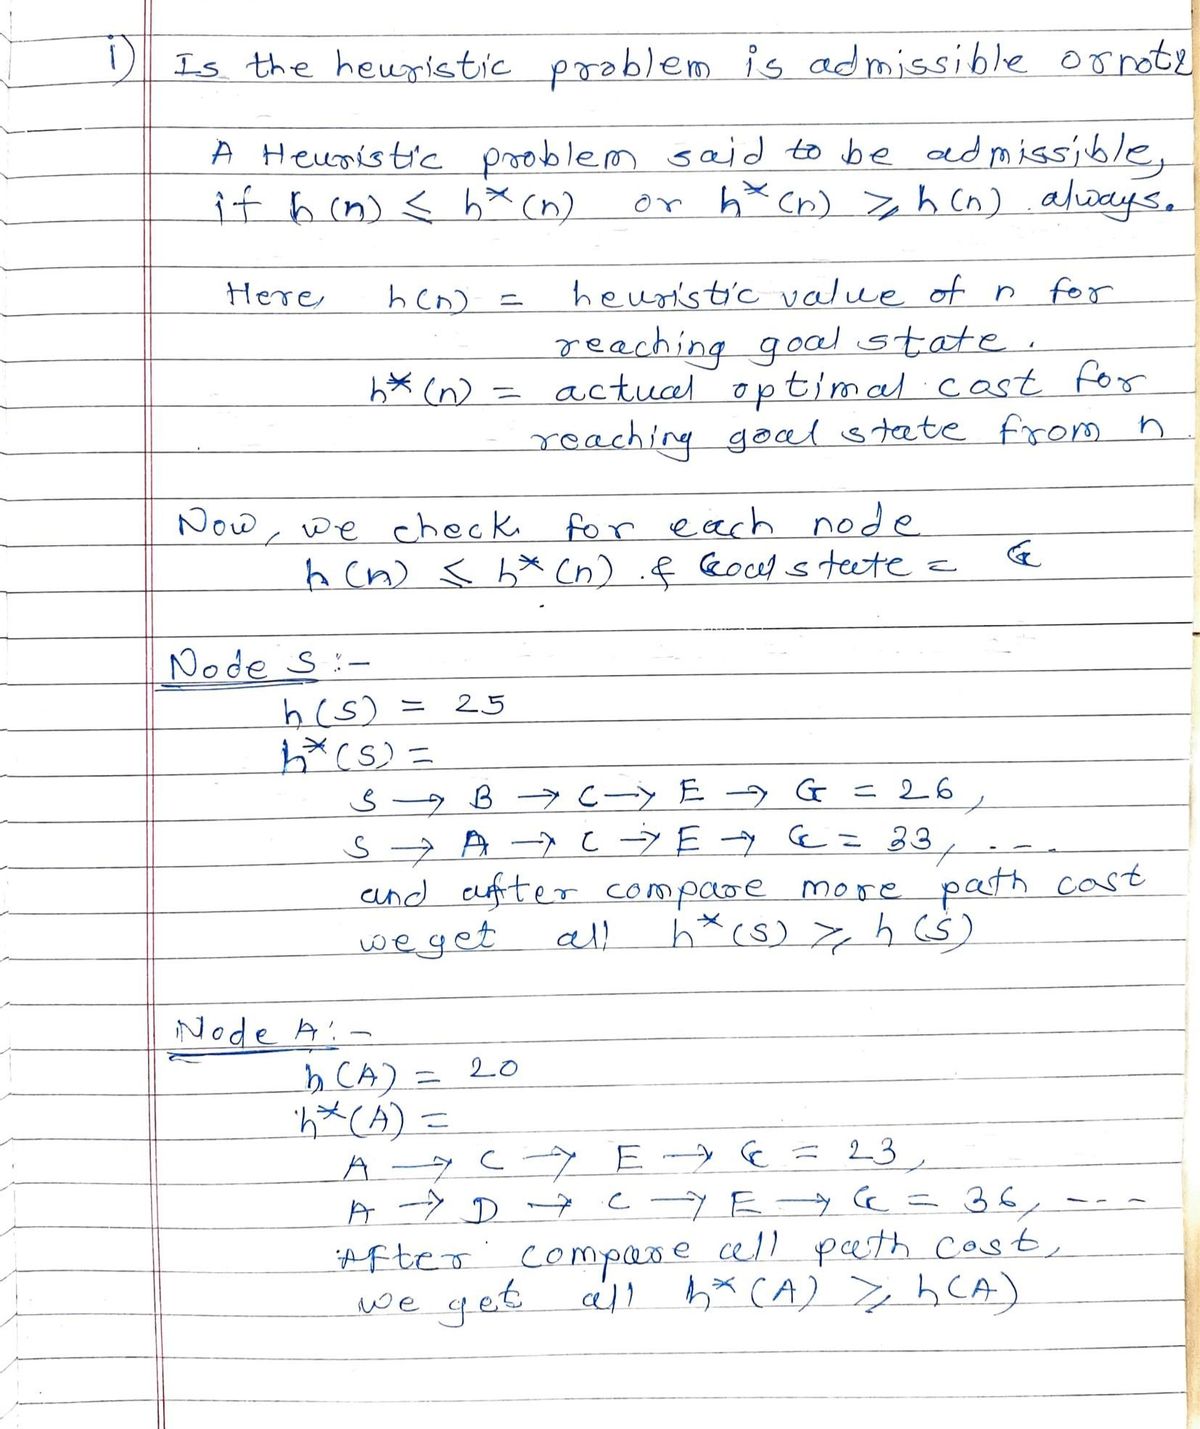 i) Is the heuristic problem is admissible or not?
A Heuristic problem said to be admissible,
if h(n) ≤ h*(n) or h*(n) ≥ h(n) always.
Here, h(n) = heuristic value of n for
reaching goal state.
h*(n) = actual optimal cost for
reaching goal state from n
Now, we check for each node
h(n) ≤ h*(n) & Goal state = G
Node S :-
h(S) = 25
h*(S) =
S → B → C → E → G = 26,
S → A → C → E → G = 33, ....
and after compare more path cost
we get all h*(S) ≥ h(S)
Node A :-
h(A) = 20
h*(A) =
A → C → E → G = 23,
A → D → C → E → G = 36, ---
After compare all path cost,
we get all h*(A) ≥ h(A)